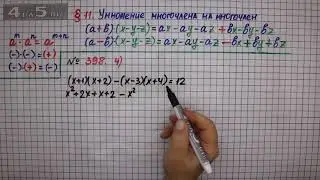 4 из 5 ru
§ 11. Умножение многочлена на многочлен
aᵐ·aⁿ = aᵐ⁺ⁿ
(-)·(-) = (+)
(-)·(+) = (-)
(a+b)(x-y-z) = ax-ay-az+bx-by-bz
(a-b)(x-y-z) = ax-ay-az-bx+by+bz
№ 398. 4)
(x+1)(x+2) - (x-3)(x+4) = 12
x²+2x+x+2 - x²